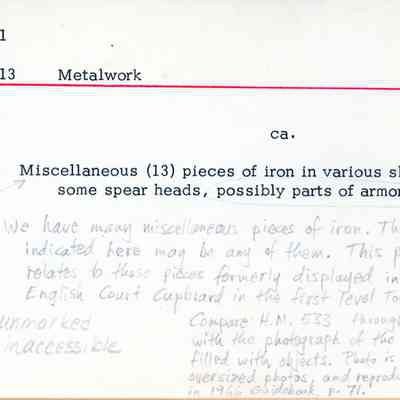 1
13 Metalwork
ca.
Miscellaneous (13) pieces of iron in various
some spear heads, possibly parts of armor
We have many miscellaneous pieces of iron. Th
indicated here may be any of them. This
relates to those pieces formerly displayed in
English Court Cupboard in the first level
unmarked
inaccessible
Compare H.M. 533 through
with the photograph of the
filled with objects. Photo is
oversized photos, and reprodu
in 1966 Guidebook, p. 71.